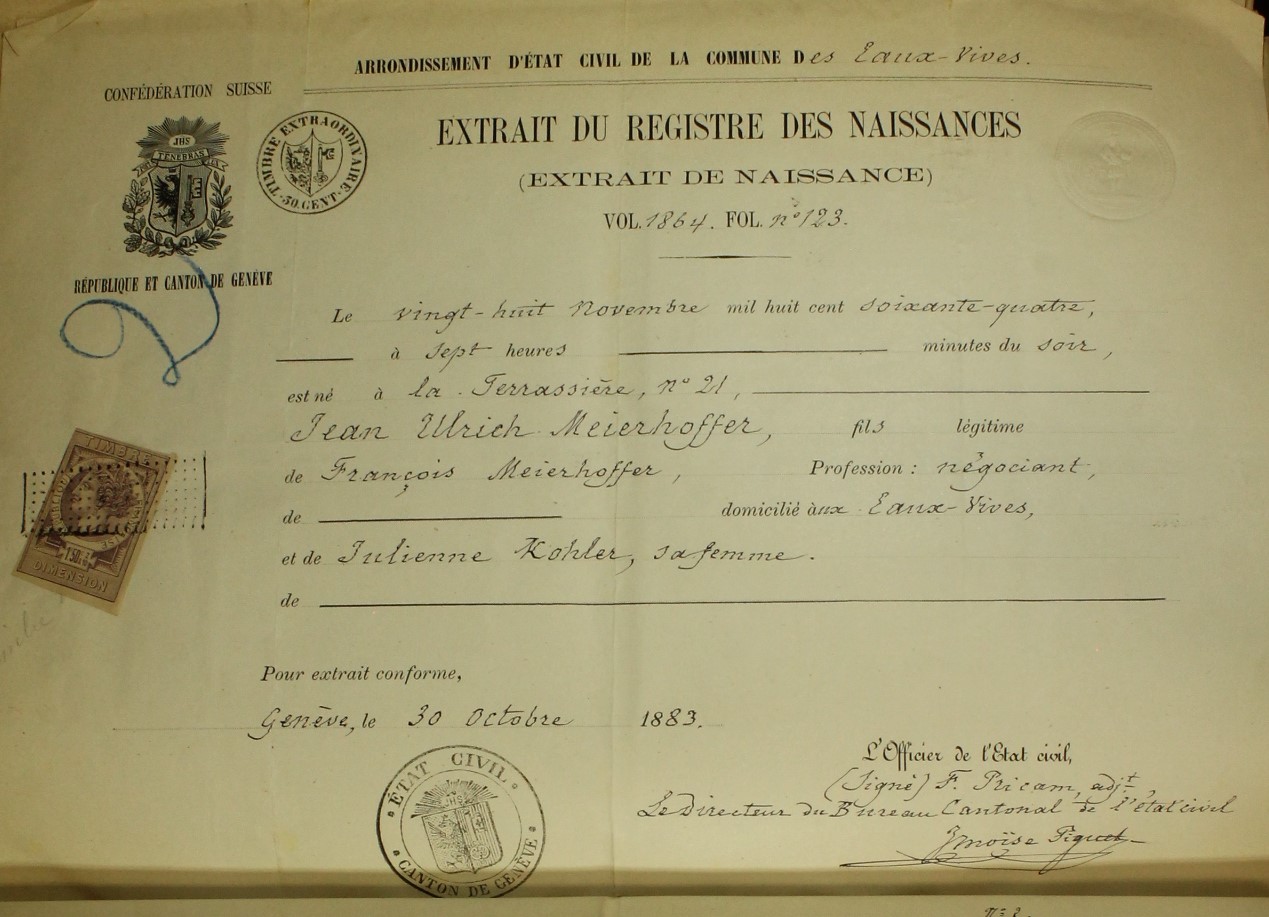 ARRONDISSEMENT D'ÉTAT CIVIL DE LA COMMUNE Des Eaux-Vives.
CONFÉDÉRATION SUISSE
JHS
TENEBRAS
POST LUX
RÉPUBLIQUE ET CANTON DE GENÈVE
TIMBRE EXTRAORDINAIRE
50 CENT.
EXTRAIT DU REGISTRE DES NAISSANCES
(EXTRAIT DE NAISSANCE)
VOL. 1864. FOL. n° 123.
Le vingt-huit Novembre mil huit cent soixante-quatre,
à sept heures minutes du soir,
est né à la Terrassière, n° 21,
Jean Ulrich Meierhoffer, fils légitime
de François Meierhoffer, Profession : négociant,
de domicilié àux Eaux-Vives,
et de Julienne Kohler, sa femme.
de
TIMBRE
DIMENSION
Pour extrait conforme,
Genève, le 30 Octobre 1883.
ÉTAT CIVIL
JHS
CANTON DE GENÈVE
L'Officier de l'Etat civil,
(Signé) F. Pricam, adjt,
Le Directeur du Bureau Cantonal de l'état civil
Piguet